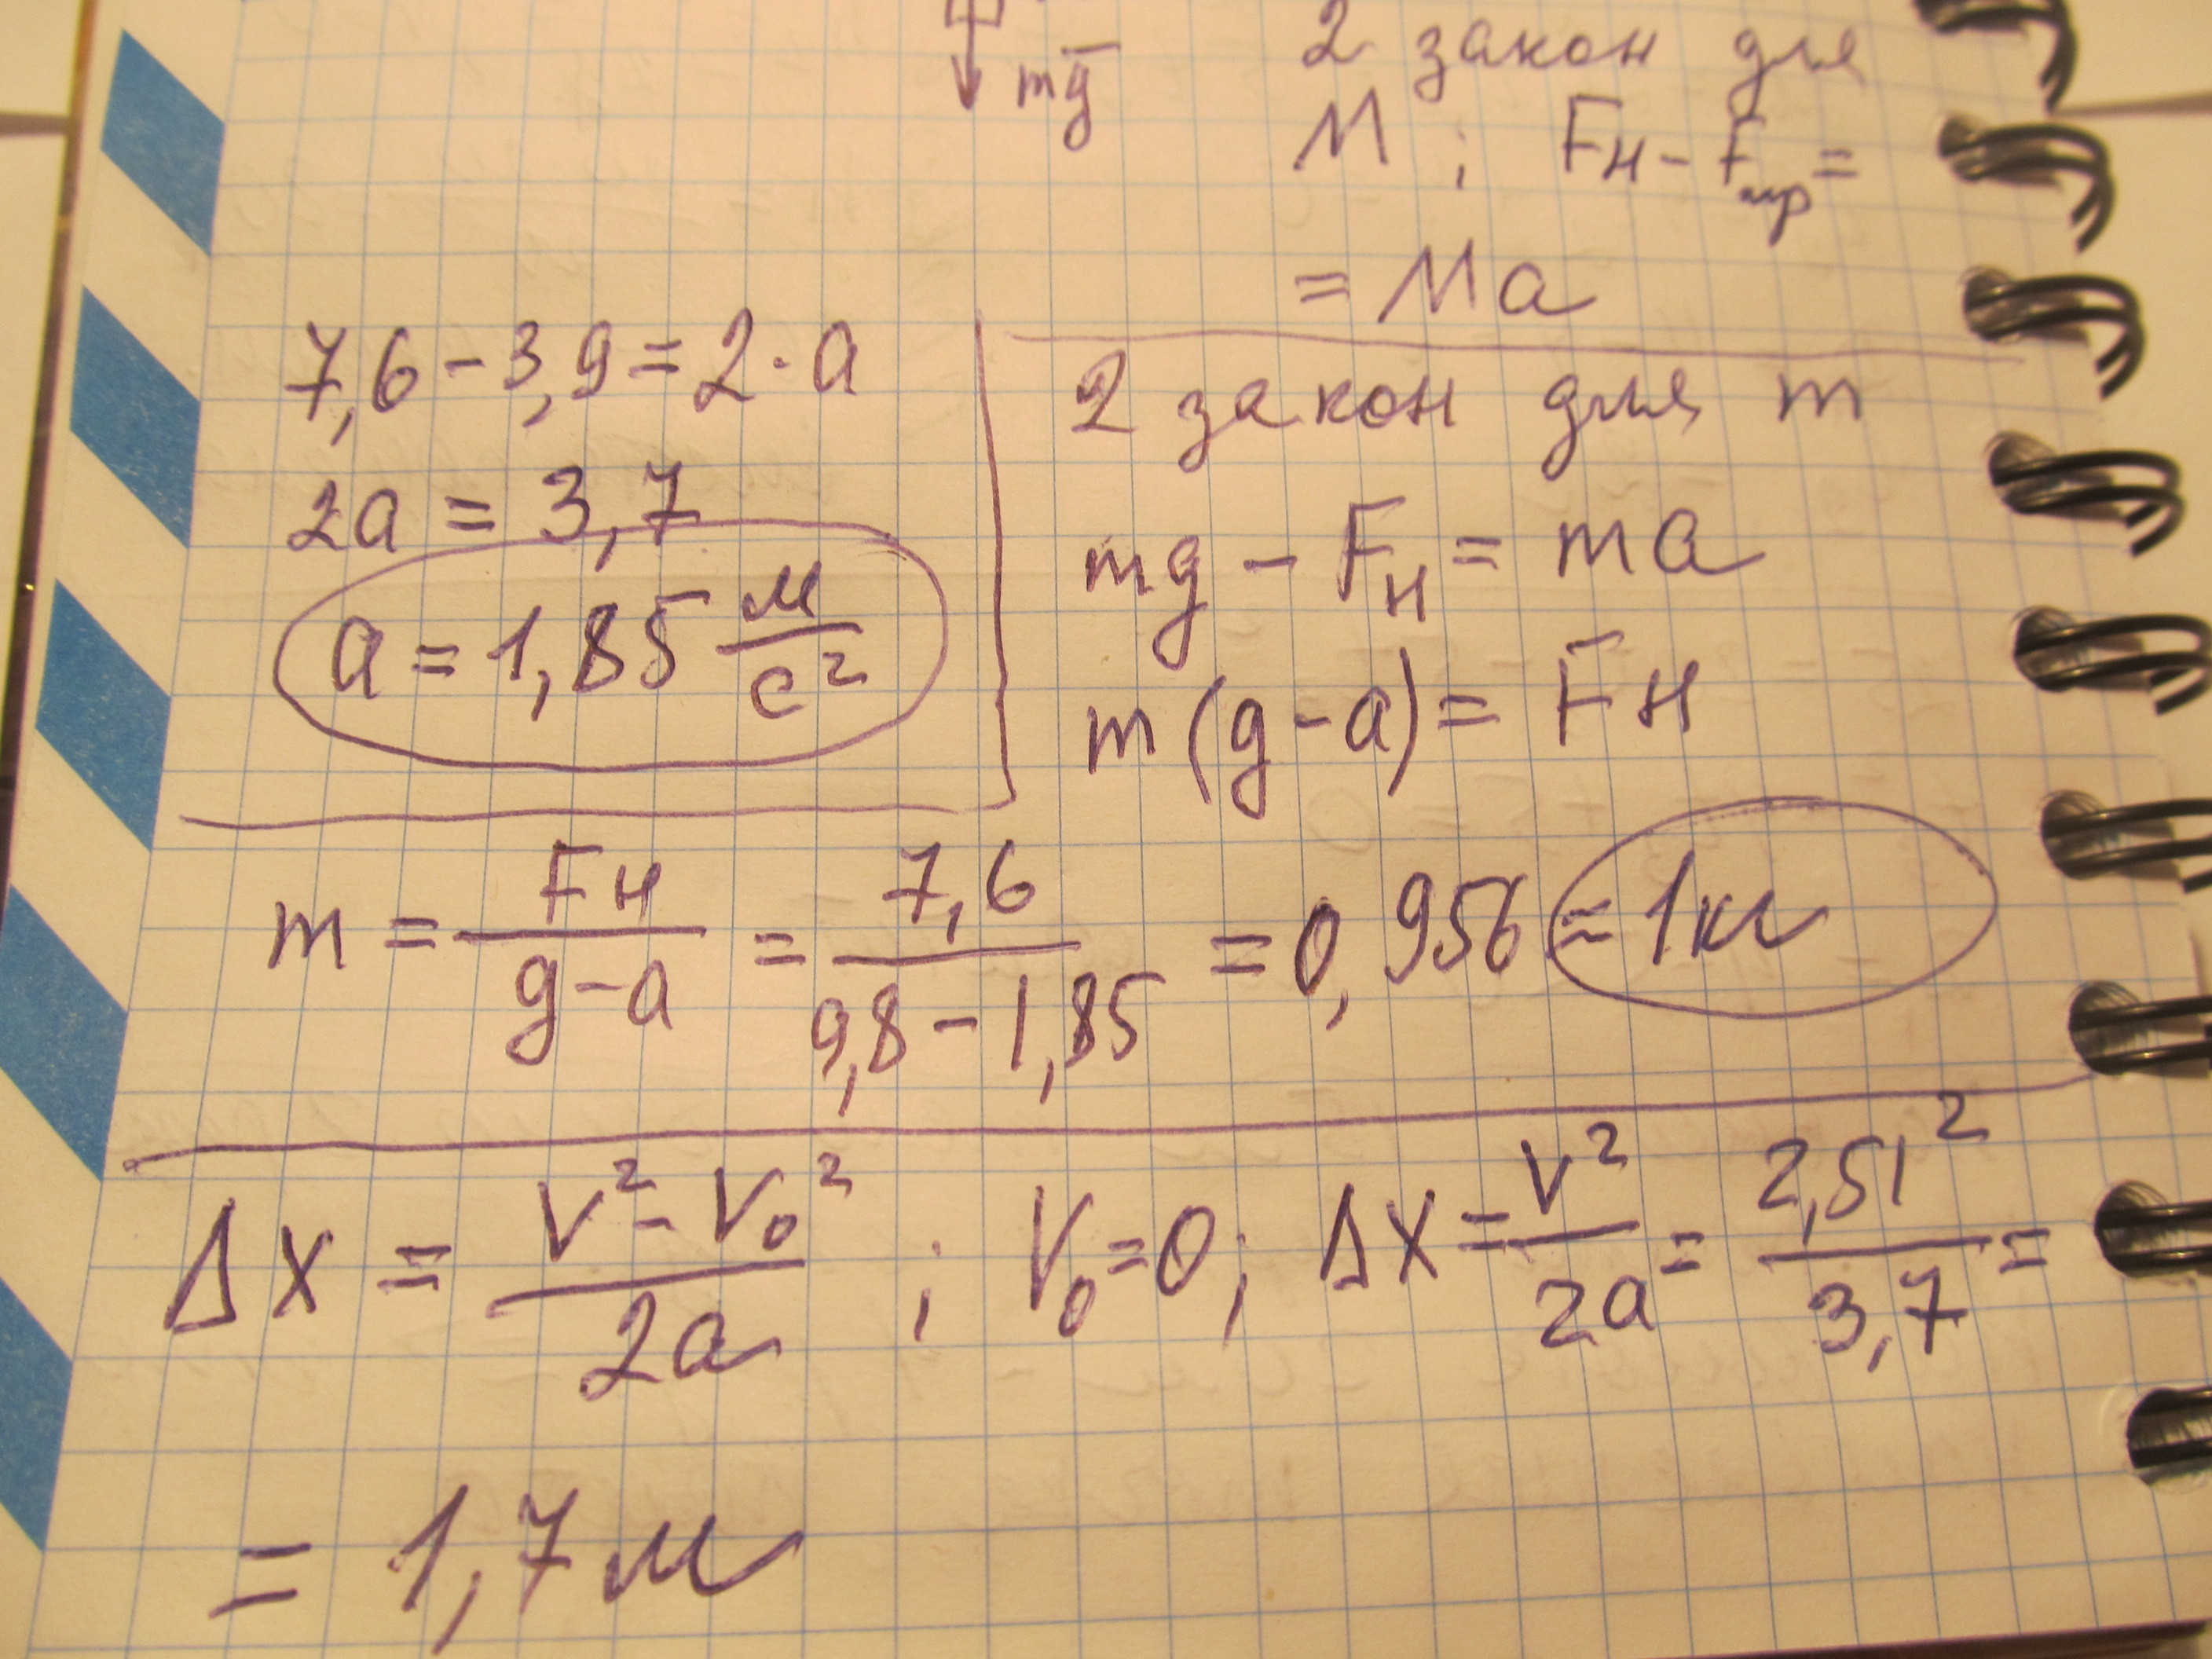 mg
2 закон для
M; Fн - Fтр =
= Ma
7,6 - 3,9 = 2 · a
2a = 3,7
a = 1,85 м/с²
2 закон для m
mg - Fн = ma
m(g - a) = Fн
m = Fн/(g - a) = 7,6/(9,8 - 1,85) = 0,956 ≈ 1кг
Δx = (V² - V₀²)/2a ; V₀ = 0; Δx = V²/2a = 2,51²/3,7 =
= 1,7м